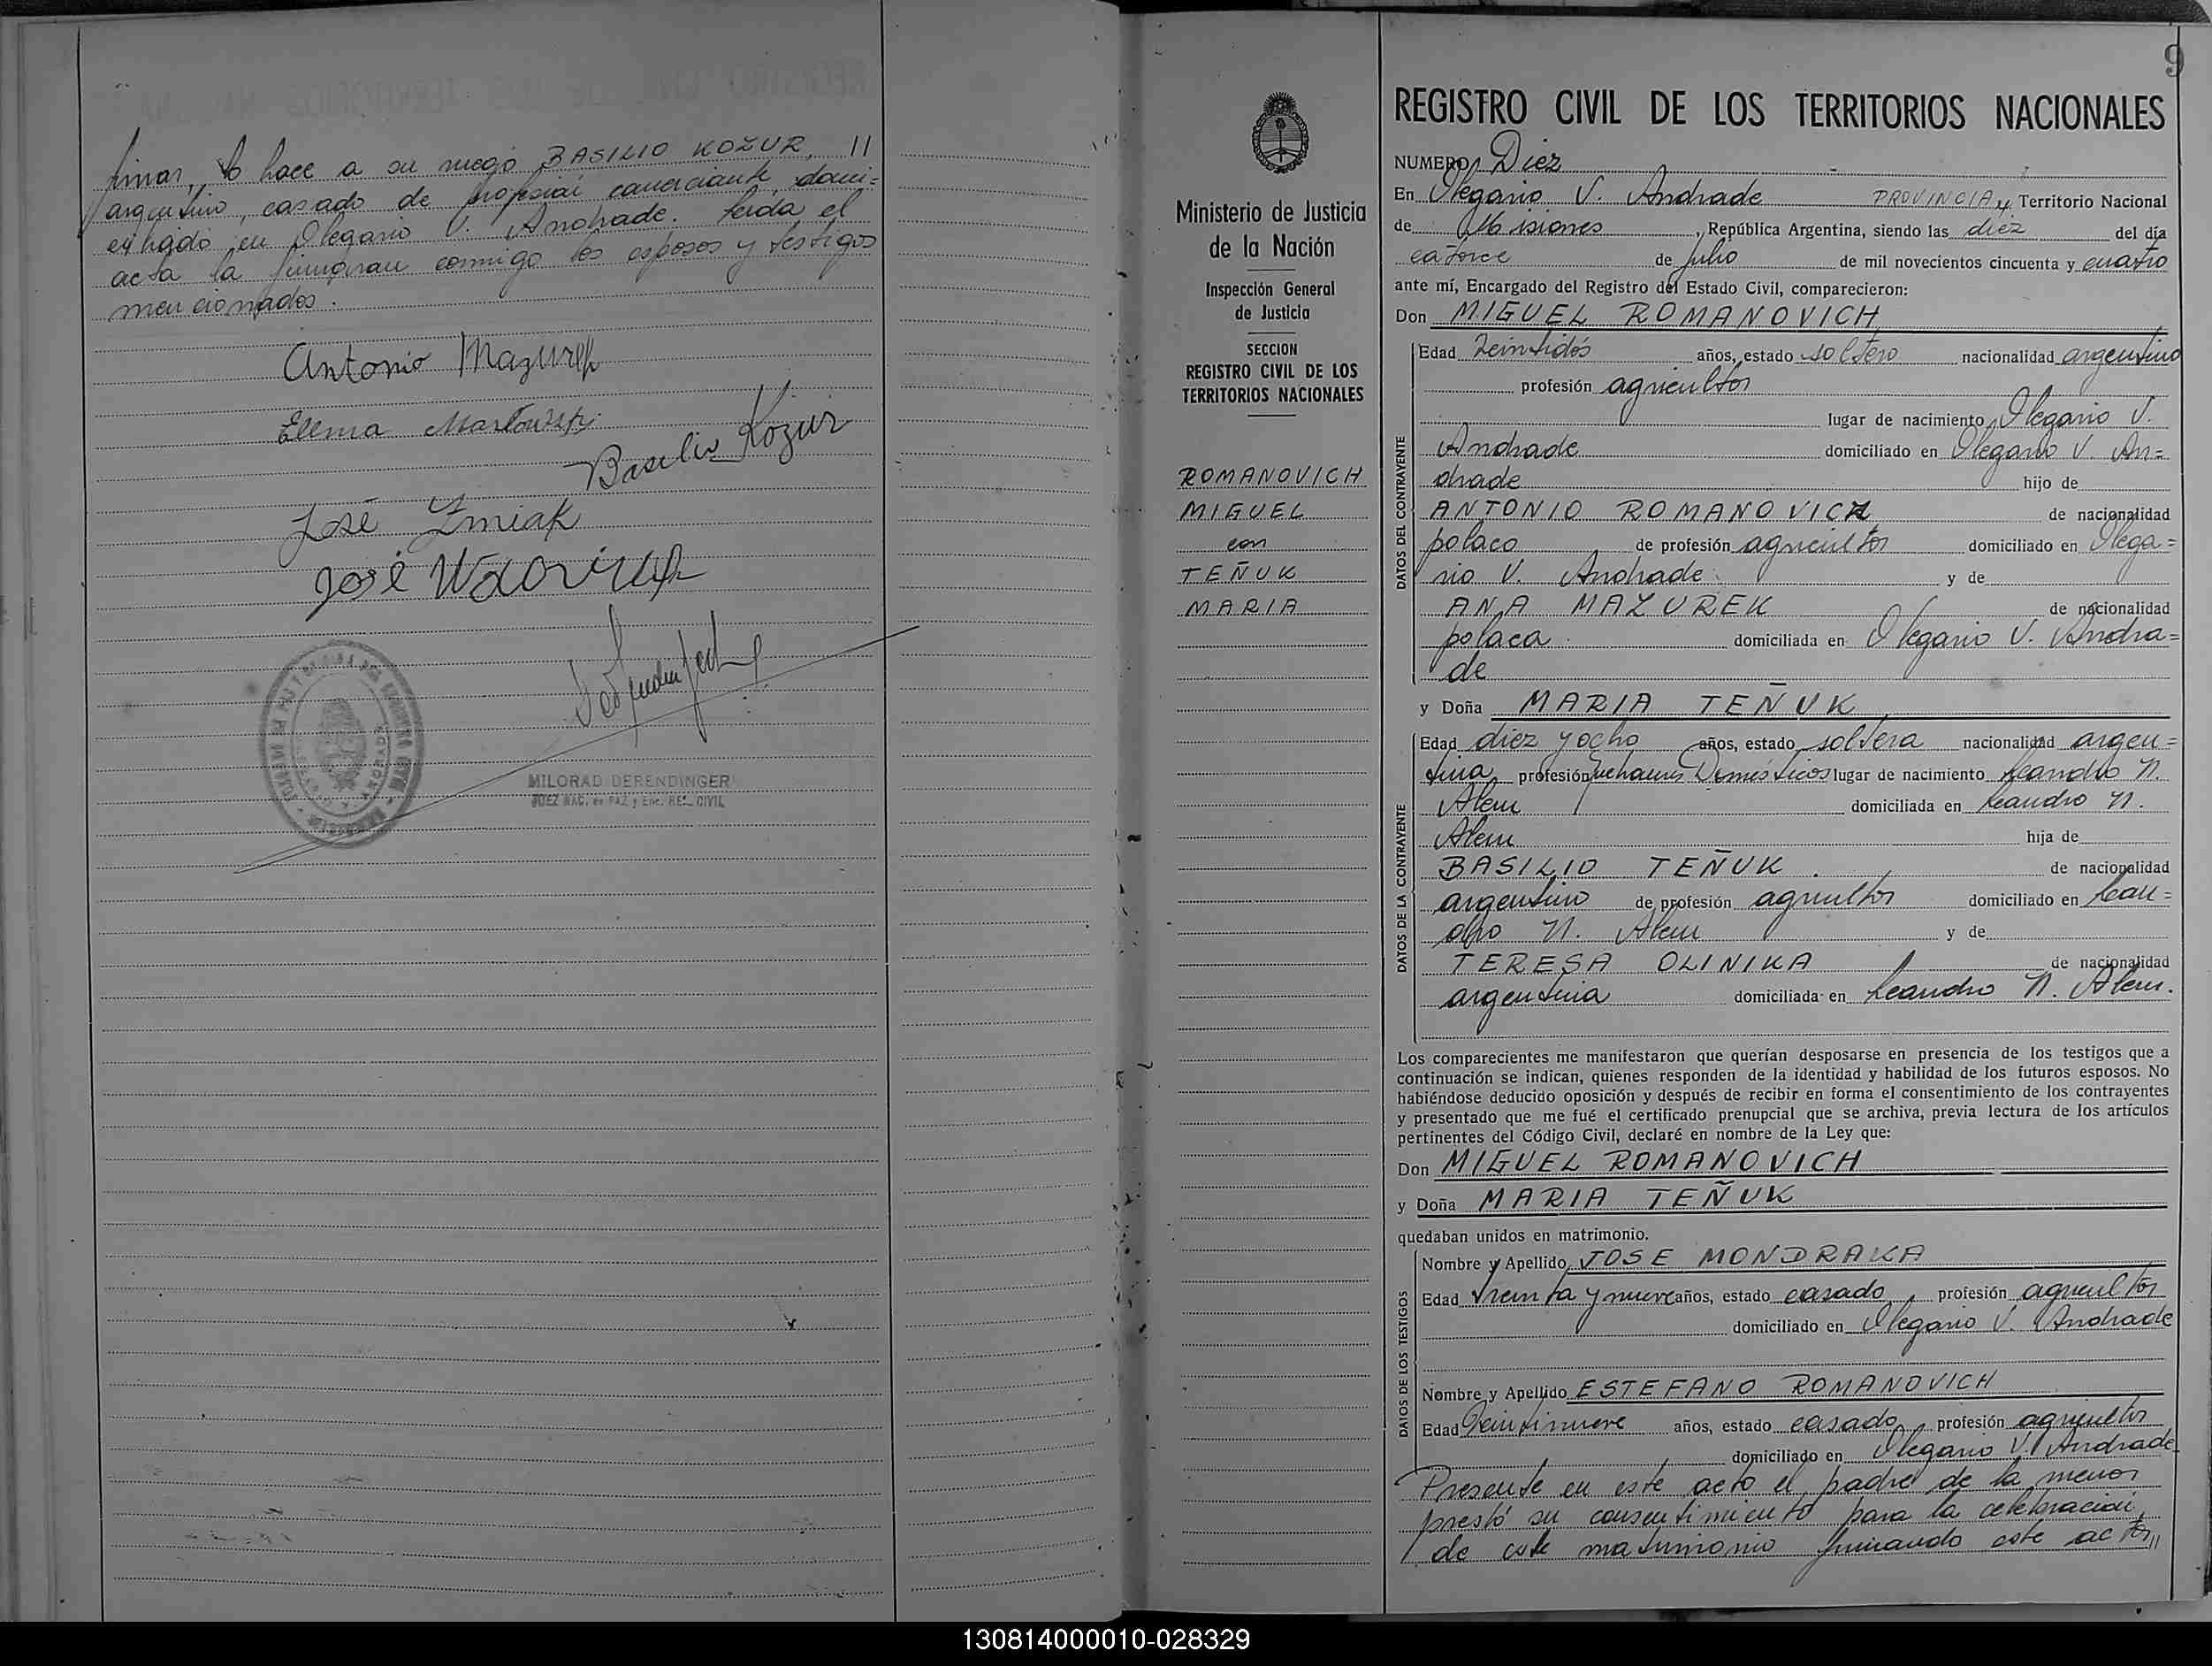 firmar, lo hace a su ruego BASILIO KOZUR, //
argentino, casado de profesión comerciante, domi=
ciliado en Olegario V. Andrade. Leída el
acta la firmaran conmigo los esposos y testigos
mencionados.
Antonio Mazurek
Elena
Basilio Kozur
José Zmiak
José
MILORAD DERENDINGER
JUEZ NAC. de PAZ y Enc. REG. CIVIL
Ministerio de Justicia
de la Nación
Inspección General
de Justicia
SECCION
REGISTRO CIVIL DE LOS
TERRITORIOS NACIONALES
ROMANOVICH
MIGUEL
con
TEÑUK
MARIA
9
REGISTRO CIVIL DE LOS TERRITORIOS NACIONALES
NUMERO Diez
En Olegario V. Andrade PROVINCIA y Territorio Nacional
de Misiones, República Argentina, siendo las diez del día
catorce de Julio de mil novecientos cincuenta y cuatro
ante mí, Encargado del Registro del Estado Civil, comparecieron:
Don MIGUEL ROMANOVICH
DATOS DEL CONTRAYENTE
Edad Veintidós años, estado soltero nacionalidad argentino
profesión agricultor
lugar de nacimiento Olegario V.
Andrade domiciliado en Olegario V. An=
drade hijo de
ANTONIO ROMANOVICH de nacionalidad
polaco de profesión agricultor domiciliado en Olega=
rio V. Andrade y de
ANA MAZUREK de nacionalidad
polaca domiciliada en Olegario V. Andra=
de
y Doña MARIA TEÑUK
DATOS DE LA CONTRAYENTE
Edad diez y ocho años, estado soltera nacionalidad argen=
tina profesión Quehaceres Domésticos lugar de nacimiento Leandro N.
Alem domiciliada en Leandro N.
Alem hija de
BASILIO TEÑUK de nacionalidad
argentino de profesión agricultor domiciliado en Lean=
dro N. Alem y de
TERESA OLINIKA de nacionalidad
argentina domiciliada en Leandro N. Alem.
Los comparecientes me manifestaron que querían desposarse en presencia de los testigos que a
continuación se indican, quienes responden de la identidad y habilidad de los futuros esposos. No
habiéndose deducido oposición y después de recibir en forma el consentimiento de los contrayentes
y presentado que me fué el certificado prenupcial que se archiva, previa lectura de los artículos
pertinentes del Código Civil, declaré en nombre de la Ley que:
Don MIGUEL ROMANOVICH
y Doña MARIA TEÑUK
quedaban unidos en matrimonio.
DATOS DE LOS TESTIGOS
Nombre y Apellido JOSE MONDRAKA
Edad treinta y nueve años, estado casado profesión agricultor
domiciliado en Olegario V. Andrade
Nombre y Apellido ESTEFANO ROMANOVICH
Edad Veintinueve años, estado casado, profesión agricultor
domiciliado en Olegario V. Andrade
Presente en este acto el padre de la menor
prestó su consentimiento para la celebración
de este matrimonio firmando este acto //
130814000010-028329